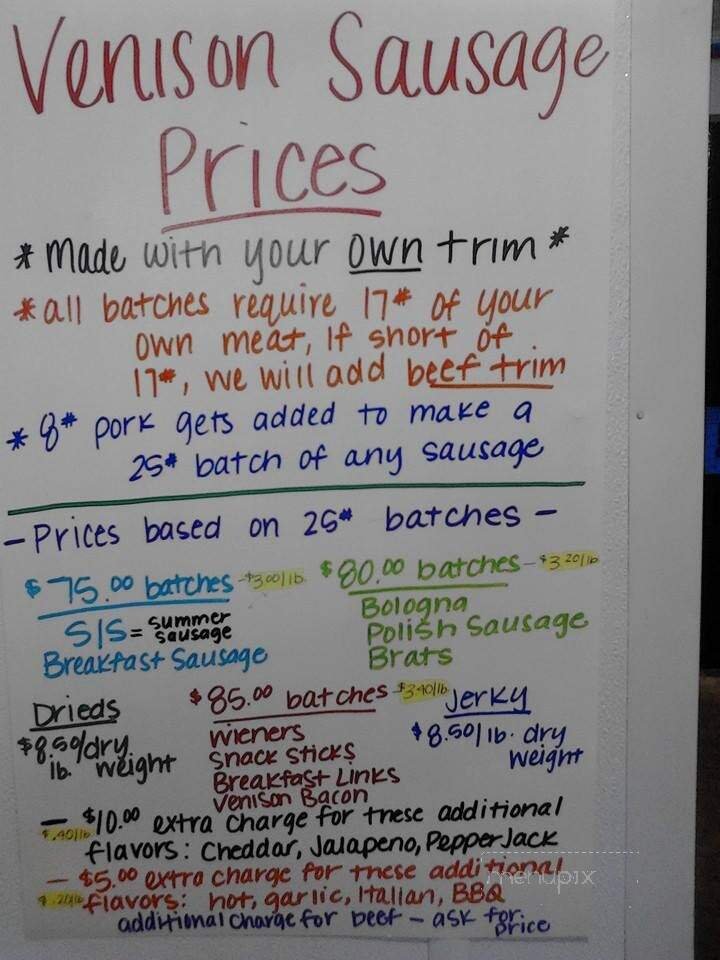 Venison Sausage
Prices
* Made with your own trim *
* all batches require 17# of your
own meat, If short of
17#, we will add beef trim
* 8# pork gets added to make a
25# batch of any sausage
- Prices based on 25# batches -
$75.00 batches - $3.00/lb
S/S = summer sausage
Breakfast Sausage
$80.00 batches - $3.20/lb
Bologna
Polish Sausage
Brats
Drieds
$8.50/dry
lb. weight
$85.00 batches - $3.40/lb
Wieners
Snack Sticks
Breakfast Links
Venison Bacon
Jerky
$8.50/lb. dry
weight
- $10.00 extra charge for these additional
$.40/lb flavors: Cheddar, Jalapeno, PepperJack
- $5.00 extra charge for these additional
$.20/lb flavors: hot, garlic, Italian, BBQ
additional charge for beef - ask for price
menupix